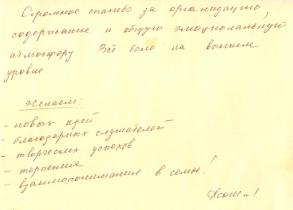 Огромное спасибо за организацию,
содержание и общую эмоциональную
атмосферу Всё было на высшем
уровне
Желаем:
- новых идей
- благодарных слушателей
- творческих успехов
- терпения
- взаимопонимания в семье!